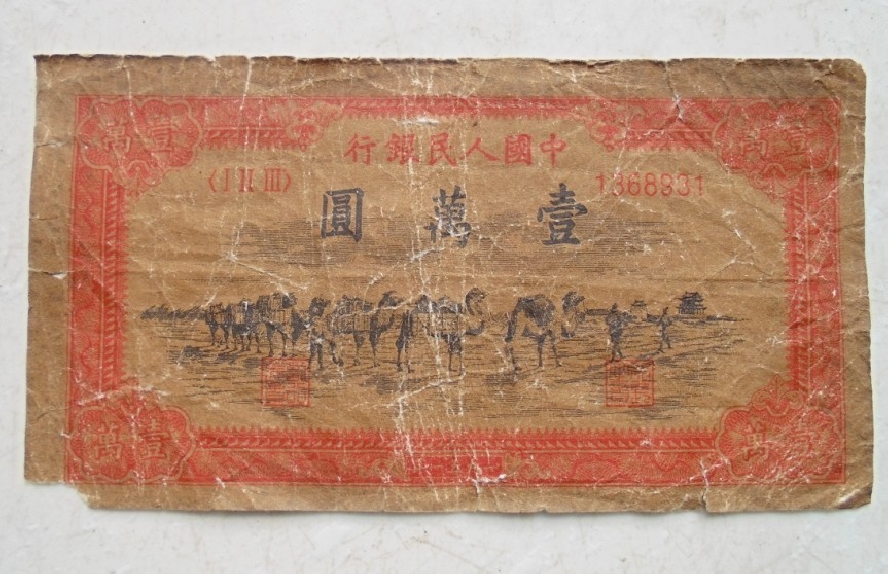 壹萬
壹萬
中國人民銀行
〈I II III〉
1368931
壹萬圓
壹萬
壹萬